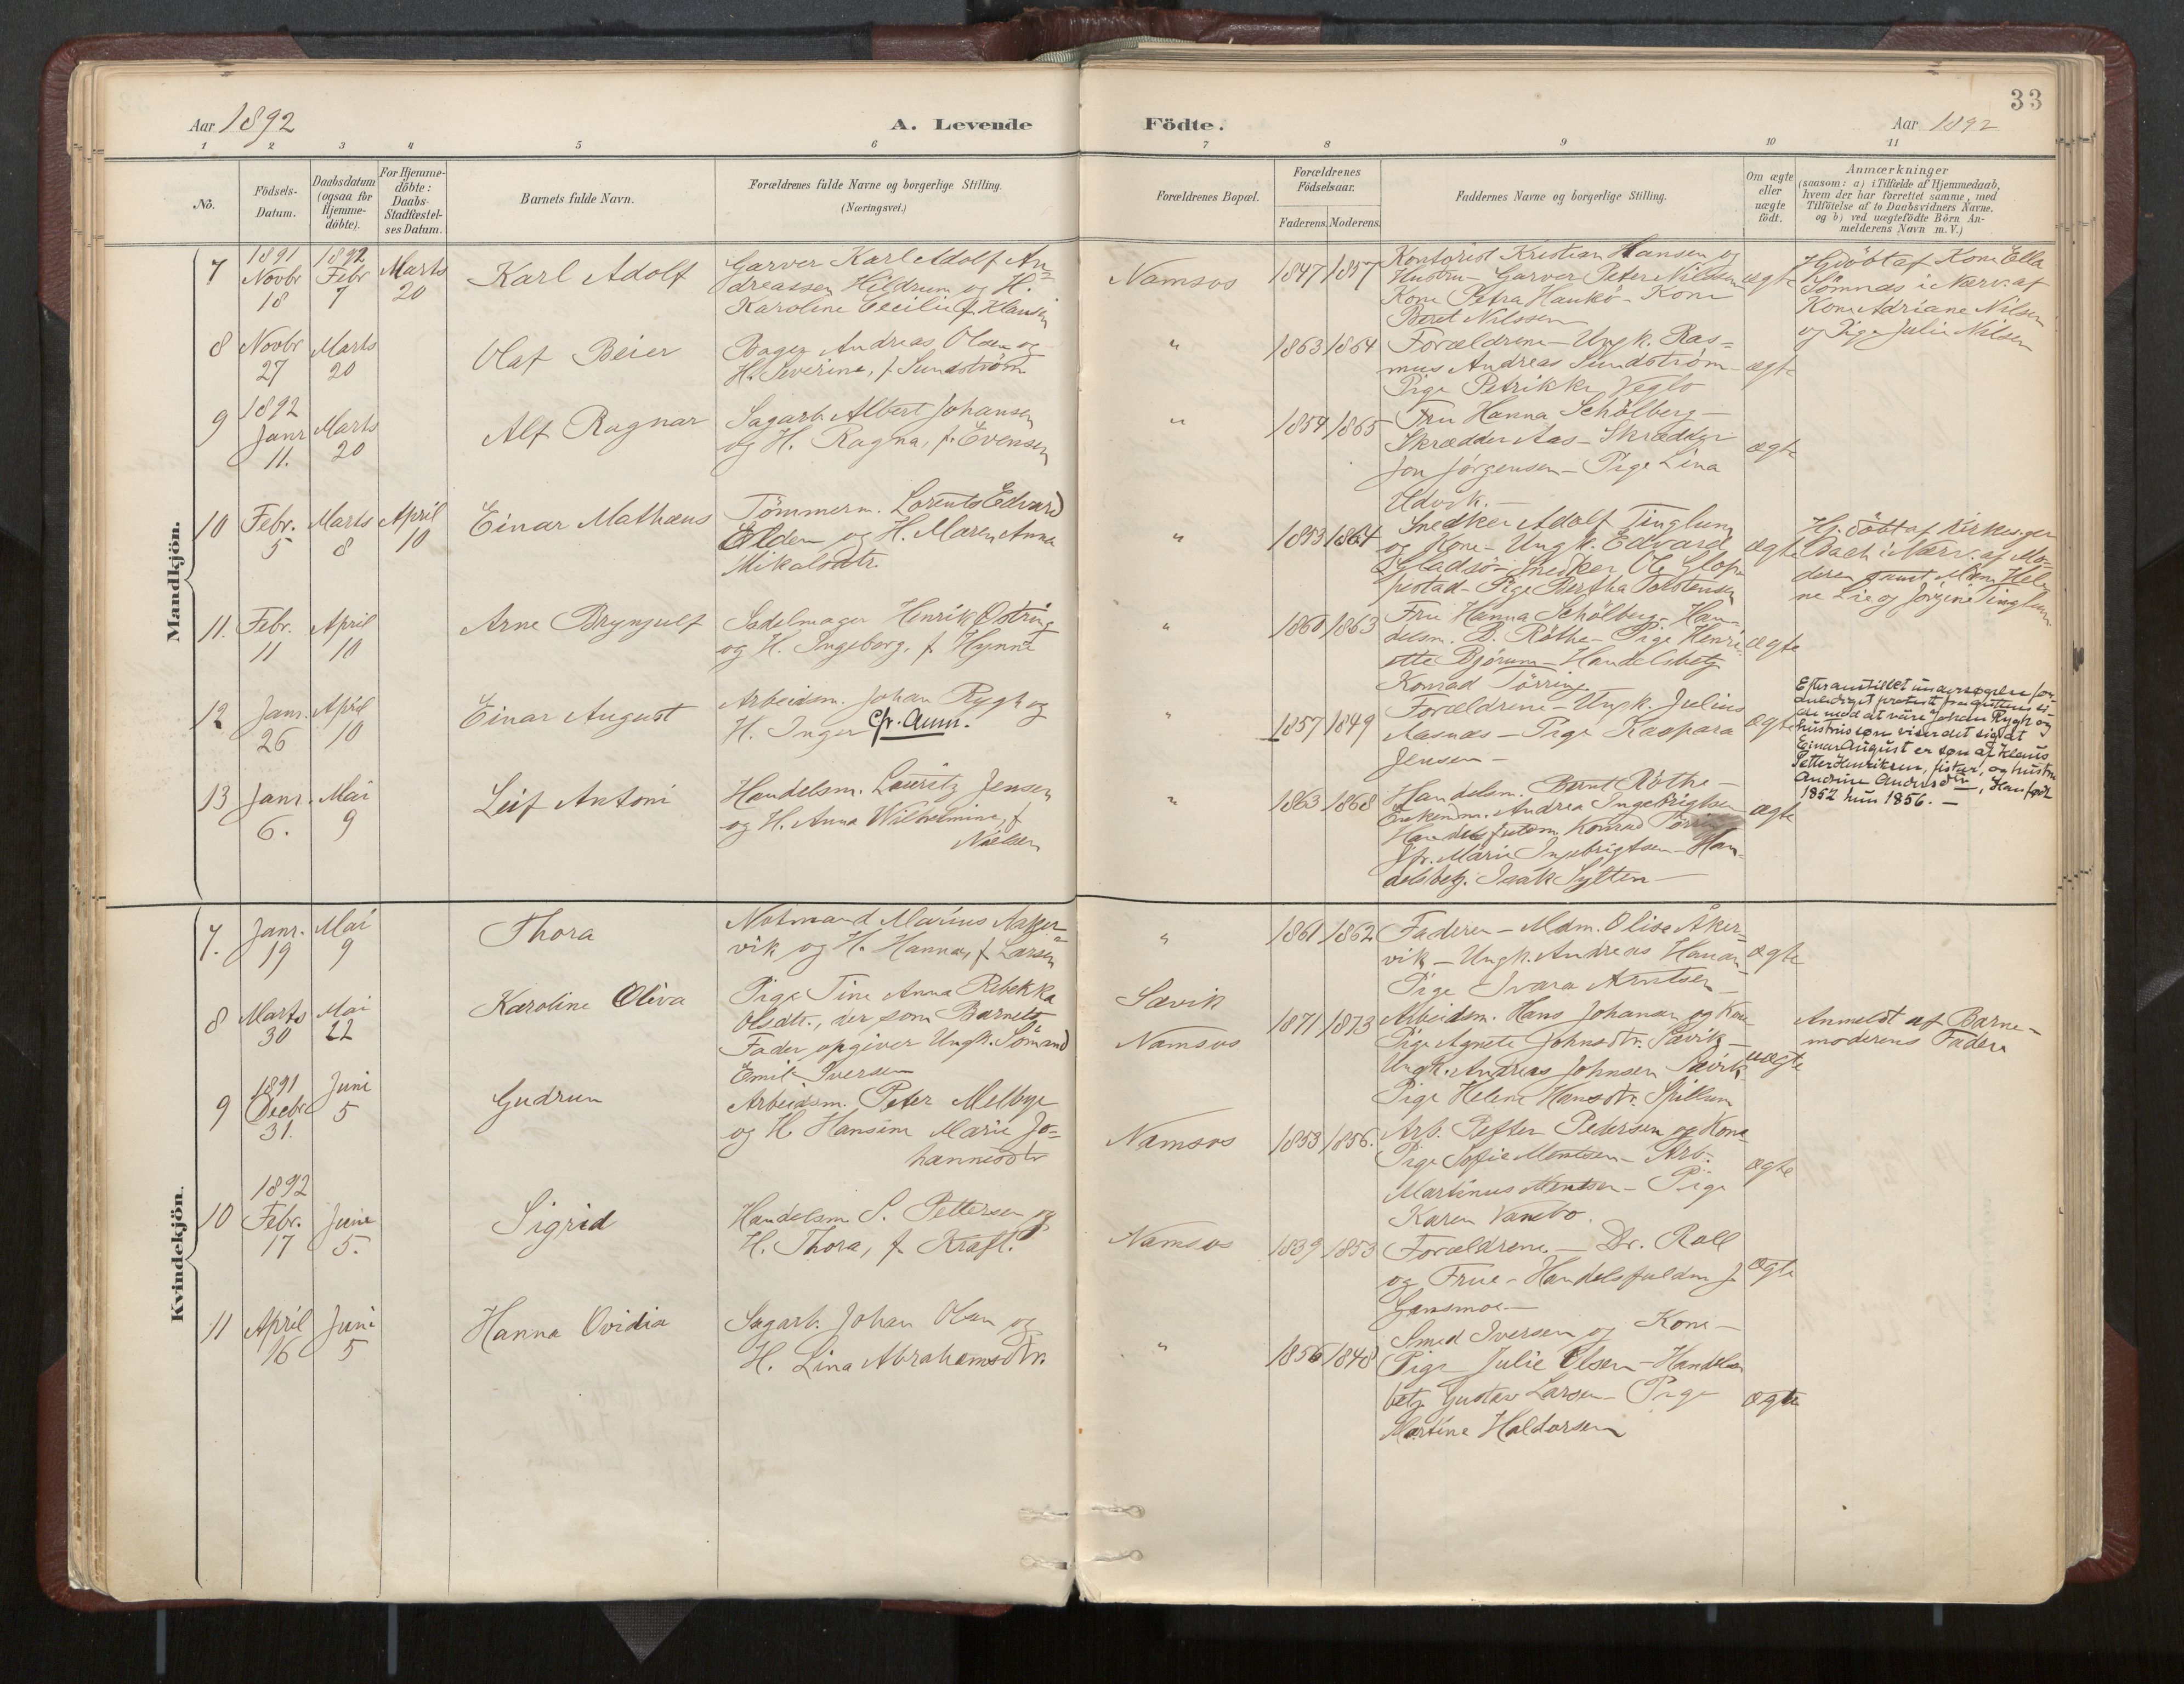 33
Aar 1892
A. Levende Födte.
Aar 1892
1 2 3 4 5 6 7 8 9 10 11
Nô.
Födsels-Datum.
Daabsdatum (ogsaa for Hjemme-döbte).
For Hjemme-döbte: Daabs-Stadfæstel-ses Datum.
Barnets fulde Navn.
Forældrenes fulde Navne og borgerlige Stilling.
(Næringsvei.)
Forældrenes Bopæl.
Forældrenes Födselsaar.
Faderens. Moderens.
Faddernes Navne og borgerlige Stilling.
Om ægte eller uægte födt.
Anmærkninger
(saasom: a) i Tilfælde af Hjemmedaab,
hvem der har forrettet samme, med
Tilföielse af to Daabsvidners Navne,
og b) ved uægtefödte Börn An-
melderens Navn m. V.)
Mandkjön.
7 1891 Novbr 18 1892 Febr 7 Marts 20
Karl Adolf
Garver Karl Adolf An-
dreassen Hildrum og H.
Karoline Cecilie f. Klausen
Namsos 1847 1857
Kontorist Kristian Hansen og
Hustru - Garver Peter Nilssen
Kone Petra Haukö - Kone
Beret Nilssen
ægte
Hjdöbt af Kone Ella
Sömnæs i Nærv. af
Kone Adriane Nilsen
og Pige Julie Nilsen
8 Novbr 27 Marts 20
Olaf Beier
Bager Andreas Olsen og
H. Severine, f. Sundström
" 1863 1864
Forældrene - Ungk. Ras-
mus Andreas Sundström -
Pige Petrikke Veglo
ægte
9 1892 Janr 11. Marts 20
Alf Ragnar
Sagarb. Albert Johansen
og H. Ragna, f. Evensen
" 1854 1865
Fru Hanna Schölberg -
Skrædder Aas - Skrædder
Jon Jörgensen - Pige Lina
Udvik. -
ægte
10 Febr. 5 Marts 8 April 10
Einar Mathæus
Tömmerm. Lorents Edvard
Elden og H. Maren Anna
Mikalsdtr.
" 1853 1864
Snedker Adolf Tinglum
og Kone - Ungk. Edvard
Gladsö - Snedker Ole
Pige Bertha Torstensen
ægte
Hj. döbt af Kirkesger
Bach i Nærv. af Mo-
deren samt Mdm. Hele-
ne Lie og Jörgine Tinglum
11. Febr. 11 April 10
Arne Brynjulf
Sadelmager Henrik Östring
og H. Ingeborg, f. Hynne
" 1860 1863
Fru Hanna Schölberg - Han-
delsm. B. Röthe - Pige Henri-
ette Bjørum - Handelsbetj.
Konrad Törring
ægte
12 Janr. 26 April 10
Einar August
Arbeidsm. Johan Rygh og
H. Inger cfr. Anm.
" 1857 1849
Forældrene - Ungk. Julius
Aasnæs - Pige Kaspara
Jensen -
ægte
Efter anstillet undersøgelse for-
anlediget protest fra guttens si-
de mod at være Johan Rygh og
hustrus søn viser det sig at
Einar August er søn af Klaus
Petter Henriksen, fisker, og hustru
Andrine Andersdtr., Han født
1852 hun 1856. -
13 Janr. 6. Mai 9
Leif Antoni
Handelsm. Lauritz Jensen
og H. Anna Wilhelmine, f
Nielsen
" 1863 1868
Handelsm. Bernt Röthe -
Enkemdm. Andrea Ingebrigtsen
Handelsfuldm. Konrad Törring
Jfr. Marie Ingebrigtsen - Han-
delsbetj. Isak Sylten -
ægte
Kvindekjön.
7. Janr. 19 Mai 9
Thora
Notmand Marius Aaker-
vik og H. Hanna, f Larsen
" 1861 1862
Faderen - Mdm. Olise Åker-
vik - Ungk. Andreas Hanan -
Pige Ivara Arntsen -
ægte
8 Marts 30 Mai 22
Karoline Oliva
Pige Tine Anna Rebekka
Olsdtr., der som Barnets
Fader opgiver Ungk. Sömand
Emil Iversen
Sævik
Namsos 1871 1873
Arbeidsm. Hans Johansen og Kone
Pige Agnete Johnsdtr. Sævik -
Ungk. Andreas Johnsen Sævik
Pige Helene Hansdtr. Spillum
uægte
Anmeldt af Barne-
moderens Fader
9 1891 Decbr 31. Juni 5
Gudrun
Arbeidsm. Peter Melbye
og H. Hansine Marie Jo-
hannesdtr
Namsos 1853 1856.
Arb. Petter Pedersen og Kone
Pige Sofie Mentsen - Arb.
Martinus Mentsen - Pige
Karen Vanebo.
ægte
10 1892 Febr. 17 Juni 5.
Sigrid
Handelsm. S. Pettersen og
H. Thora, f. Kraft.
Namsos 1839 1853
Forældrene. - Dr. Roll
og Frue - Handelsfuldm J.
Gansmoe -
ægte
11 April 16 Juni 5
Hanna Ovidia
Sagarb. Johan Olsen og
H. Lina Abrahamsdtr.
" 1856 1848
Smed Iversen og Kone -
Pige Julie Olsen - Handels-
betj. Gustav Larsen - Pige
Martine Haldorsen
ægte